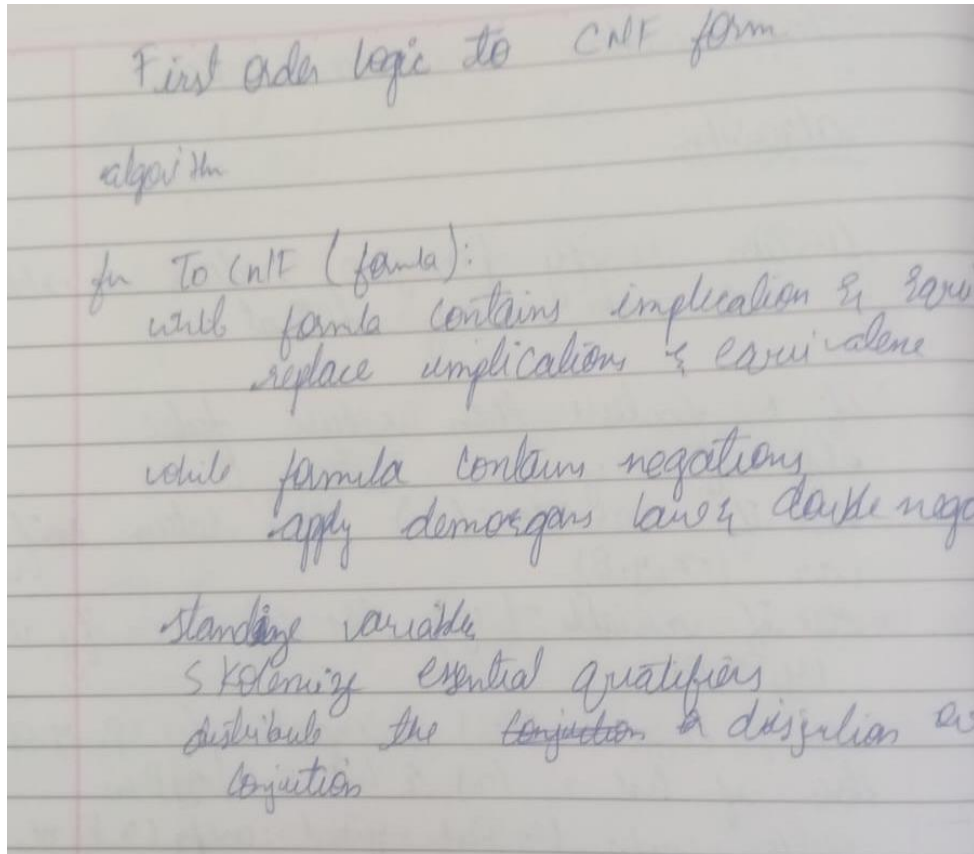 First order logic to CNF form
algorithm
fn To CNF (formula):
while formula contains implication &
replace implications & equivalence
while formula contains negations
apply demorgans laws & double nega
standize variables
skolemize essential quatifiers
distribute the disjunction
conjuction